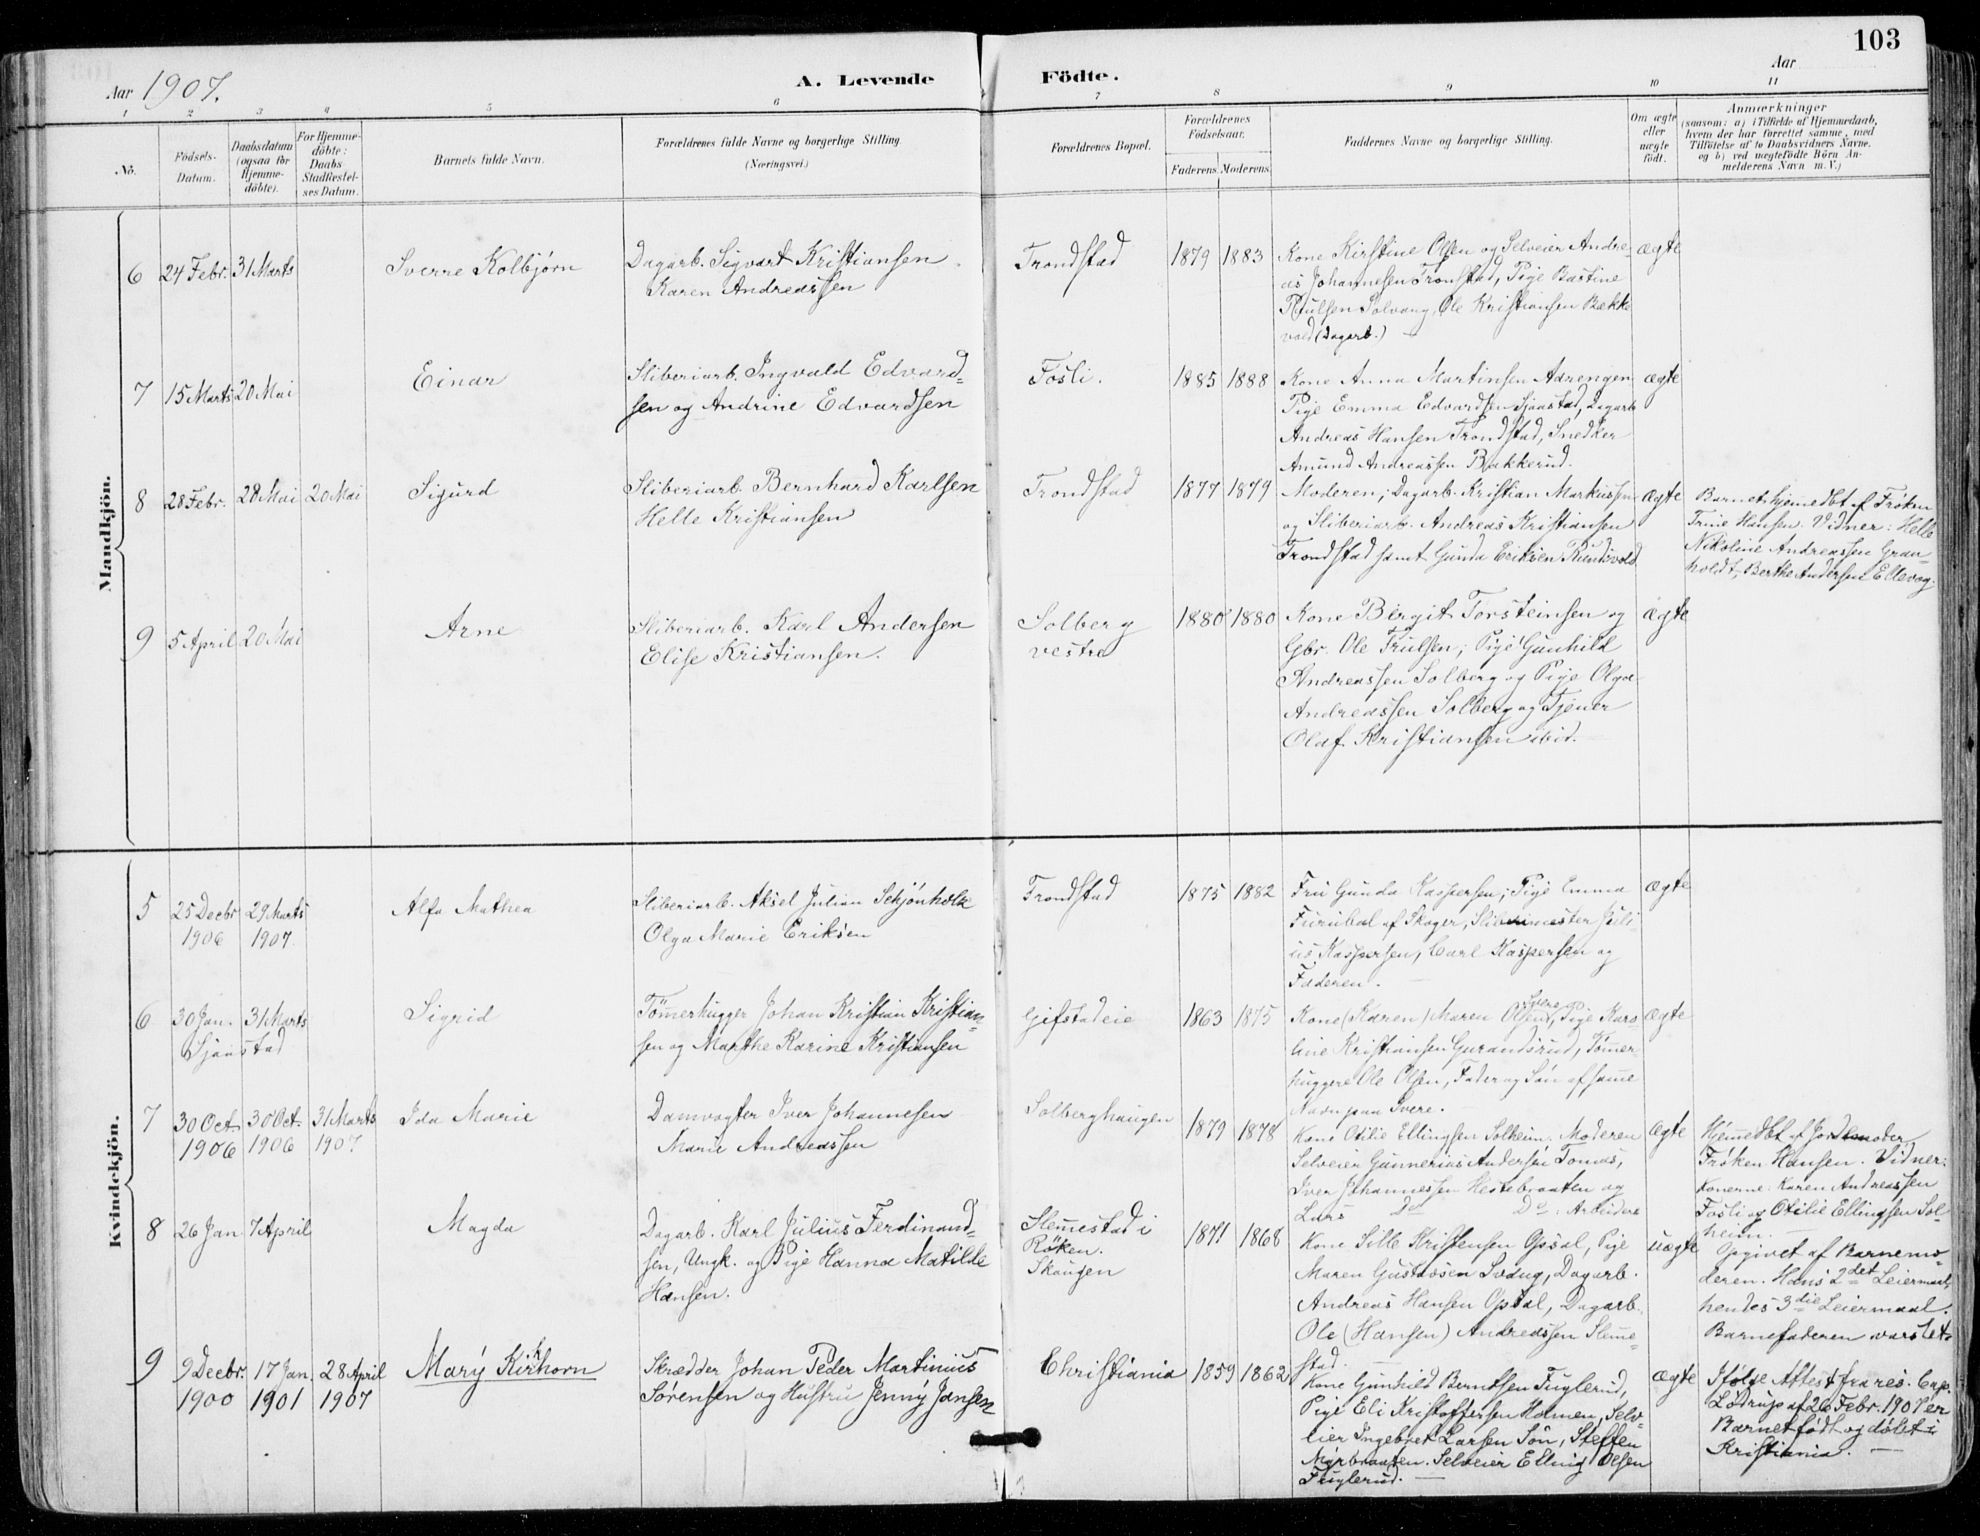 103
Aar 1907.
A. Levende Födte.
Aar
1 2 3 4 5 6 7 8 9 10 11
No.
Födsels-Datum.
Daabsdatum (ogsaa for Hjemme-döbte).
For Hjemme-döbte: Daabs-Stadfæstel-ses Datum.
Barnets fulde Navn.
Forældrenes fulde Navne og borgerlige Stilling (Næringsvei.)
Forældrenes Bopæl.
Forældrenes Födselsaar.
Faderens. Moderens.
Faddernes Navne og borgerlige Stilling.
Om ægte eller uægte født.
Anmærkninger
(saasom: a) i Tilfælde af Hjemmedaab,
hvem der har forrettet samme, med
Tilföielse af to Daabsvidners Navne.
og b) ved uægtefödte Börn An-
melderens Navn m. V.)
Mandkjön.
6 24 Febr. 31 Marts
Sverre Kolbjørn
Dagarb. Sigvart Kristiansen
Karen Andreassen
Trondstad
1879 1883
Kone Kirstine Olsen og Selveier Andre-
as Johannesen Trondstad, Pige Bastine
Paulsen Solvang, Ole Kristiansen Bække
vold (Dagarb.)
ægte
7 15 Marts 20 Mai
Einar
Sliberiarb. Ingvald Edvard-
sen og Andrine Edvardsen
Fosli.
1885 1888
Kone Anna Martinsen Aarengen
Pige Emma Edvardsen Sjaastad, Dagarb
Andreas Hansen Trondstad, Snedker
Amund Andreassen Bakkerud.
ægte
8 28 Febr. 20 Mai 20 Mai
Sigurd
Sliberiarb. Bernhard Karlsen
Helle Kristiansen
Trondstad
1877 1879
Moderen; Dagarb. Kristian Markussen
og Sliberiarb. Andreas Kristiansen
Trondstad samt Gunda Eriksen Rundvold
ægte
Barnet hjemedbt af Frøken
Trine Hansen. Vidner: Helle
Nikoline Andreassen Gran
holdt, Berthe Andersen Ellevog.
9 5 April 20 Mai
Arne
Sliberiarb. Karl Andersen
Elise Kristiansen.
Solberg
vestre
1880 1880
Kone Birgit Torsteinsen og
Gbr. Ole Trulsen; Pige Gunhild
Andreassen Solberg og Pige Olga
Andreassen Solberg og Tjener
Olaf Kristiansen ibid.
ægte
Kvindekjön.
5 25 Decbr 29 Marts
1906 1907.
Alfa Mathea
Sliberiarb. Aksel Julian Schjónholz
Olga Marie Eriksen
Trondstad
1875 1882
Fru Gunda Kaspersen; Pige Emma
Furubal af Skoger, Slibemester Juli
us Kaspersen, Carl Kaspersen og
Faderen.
ægte
6 30 Jan. 31 Marts
Sjaastad
Sigrid
Tömerhugger Johan Kristian Kristian-
sen og Marthe Karine Kristiansen
Gifstadeie
1863 1875
Kone (Karen) Maren Olsen Svere, Pige Karo
line Kristiansen Gurandsrud, Tømer
huggere Ole Olsen, Fader og Søn af same
Navn paa Svere.
ægte
7 30 Oct 30 Oct. 31 Marts
1906 1906 1907
Ida Marie
Damvogter Iver Johannesen
Marie Andreassen
Solberghaugen
1879 1878
Kone Otilie Ellingsen Solheim. Moderen
Selveier Gunnerius Andersen Tomas,
Iver Johannessen Hestebraaten og
Lars Do Do: Arbeidere
ægte
Hjemedbt af Jordemoder
Frøken Hansen. Vidner:
Konerne: Karen Andreassen
Fosli og Otilie Ellingsen Sol-
heim.
8 26 Jan 7 April
Magda
Dagarb. Karl Julius Ferdinand-
sen, Ungk. og Pige Hanna Matilde
Hansen.
Slemestad i
Røken.
Skaugen
1871 1868
Kone Sille Kristensen Opsal, Pige
Maren Gustavsen Svaug, Dagarb.
Andreas Hansen Opsal, Dagarb.
Ole (Hansen) Andreassen Sleme
stad.
uægte
Opgivet af Barnemo-
deren. Hans 2det Leiermaal,
hendes 3die Leiermaal.
Barnefaderen varslet.
9 9 Decbr. 17 Jan. 28 April
1900 1901 1907
Marÿ Kirkhorn
Skrædder Johan Peder Martinius
Sörensen og Hustru Jennÿ Jansen
Christiania
1859 1862
Kone Gunhild Berntsen Fuglerud,
Pige Eli Kristoffersen Holmen, Selv-
eier Ingebret Larsen Søn, Steffen
Myrbraaten. Selveier Elling Olsen
Fuglerud.
ægte
Ifølge Attest fra res. Cap.
Lødrup af 26 Febr. 1907 er
Barnet født og døbt i
Kristiania.